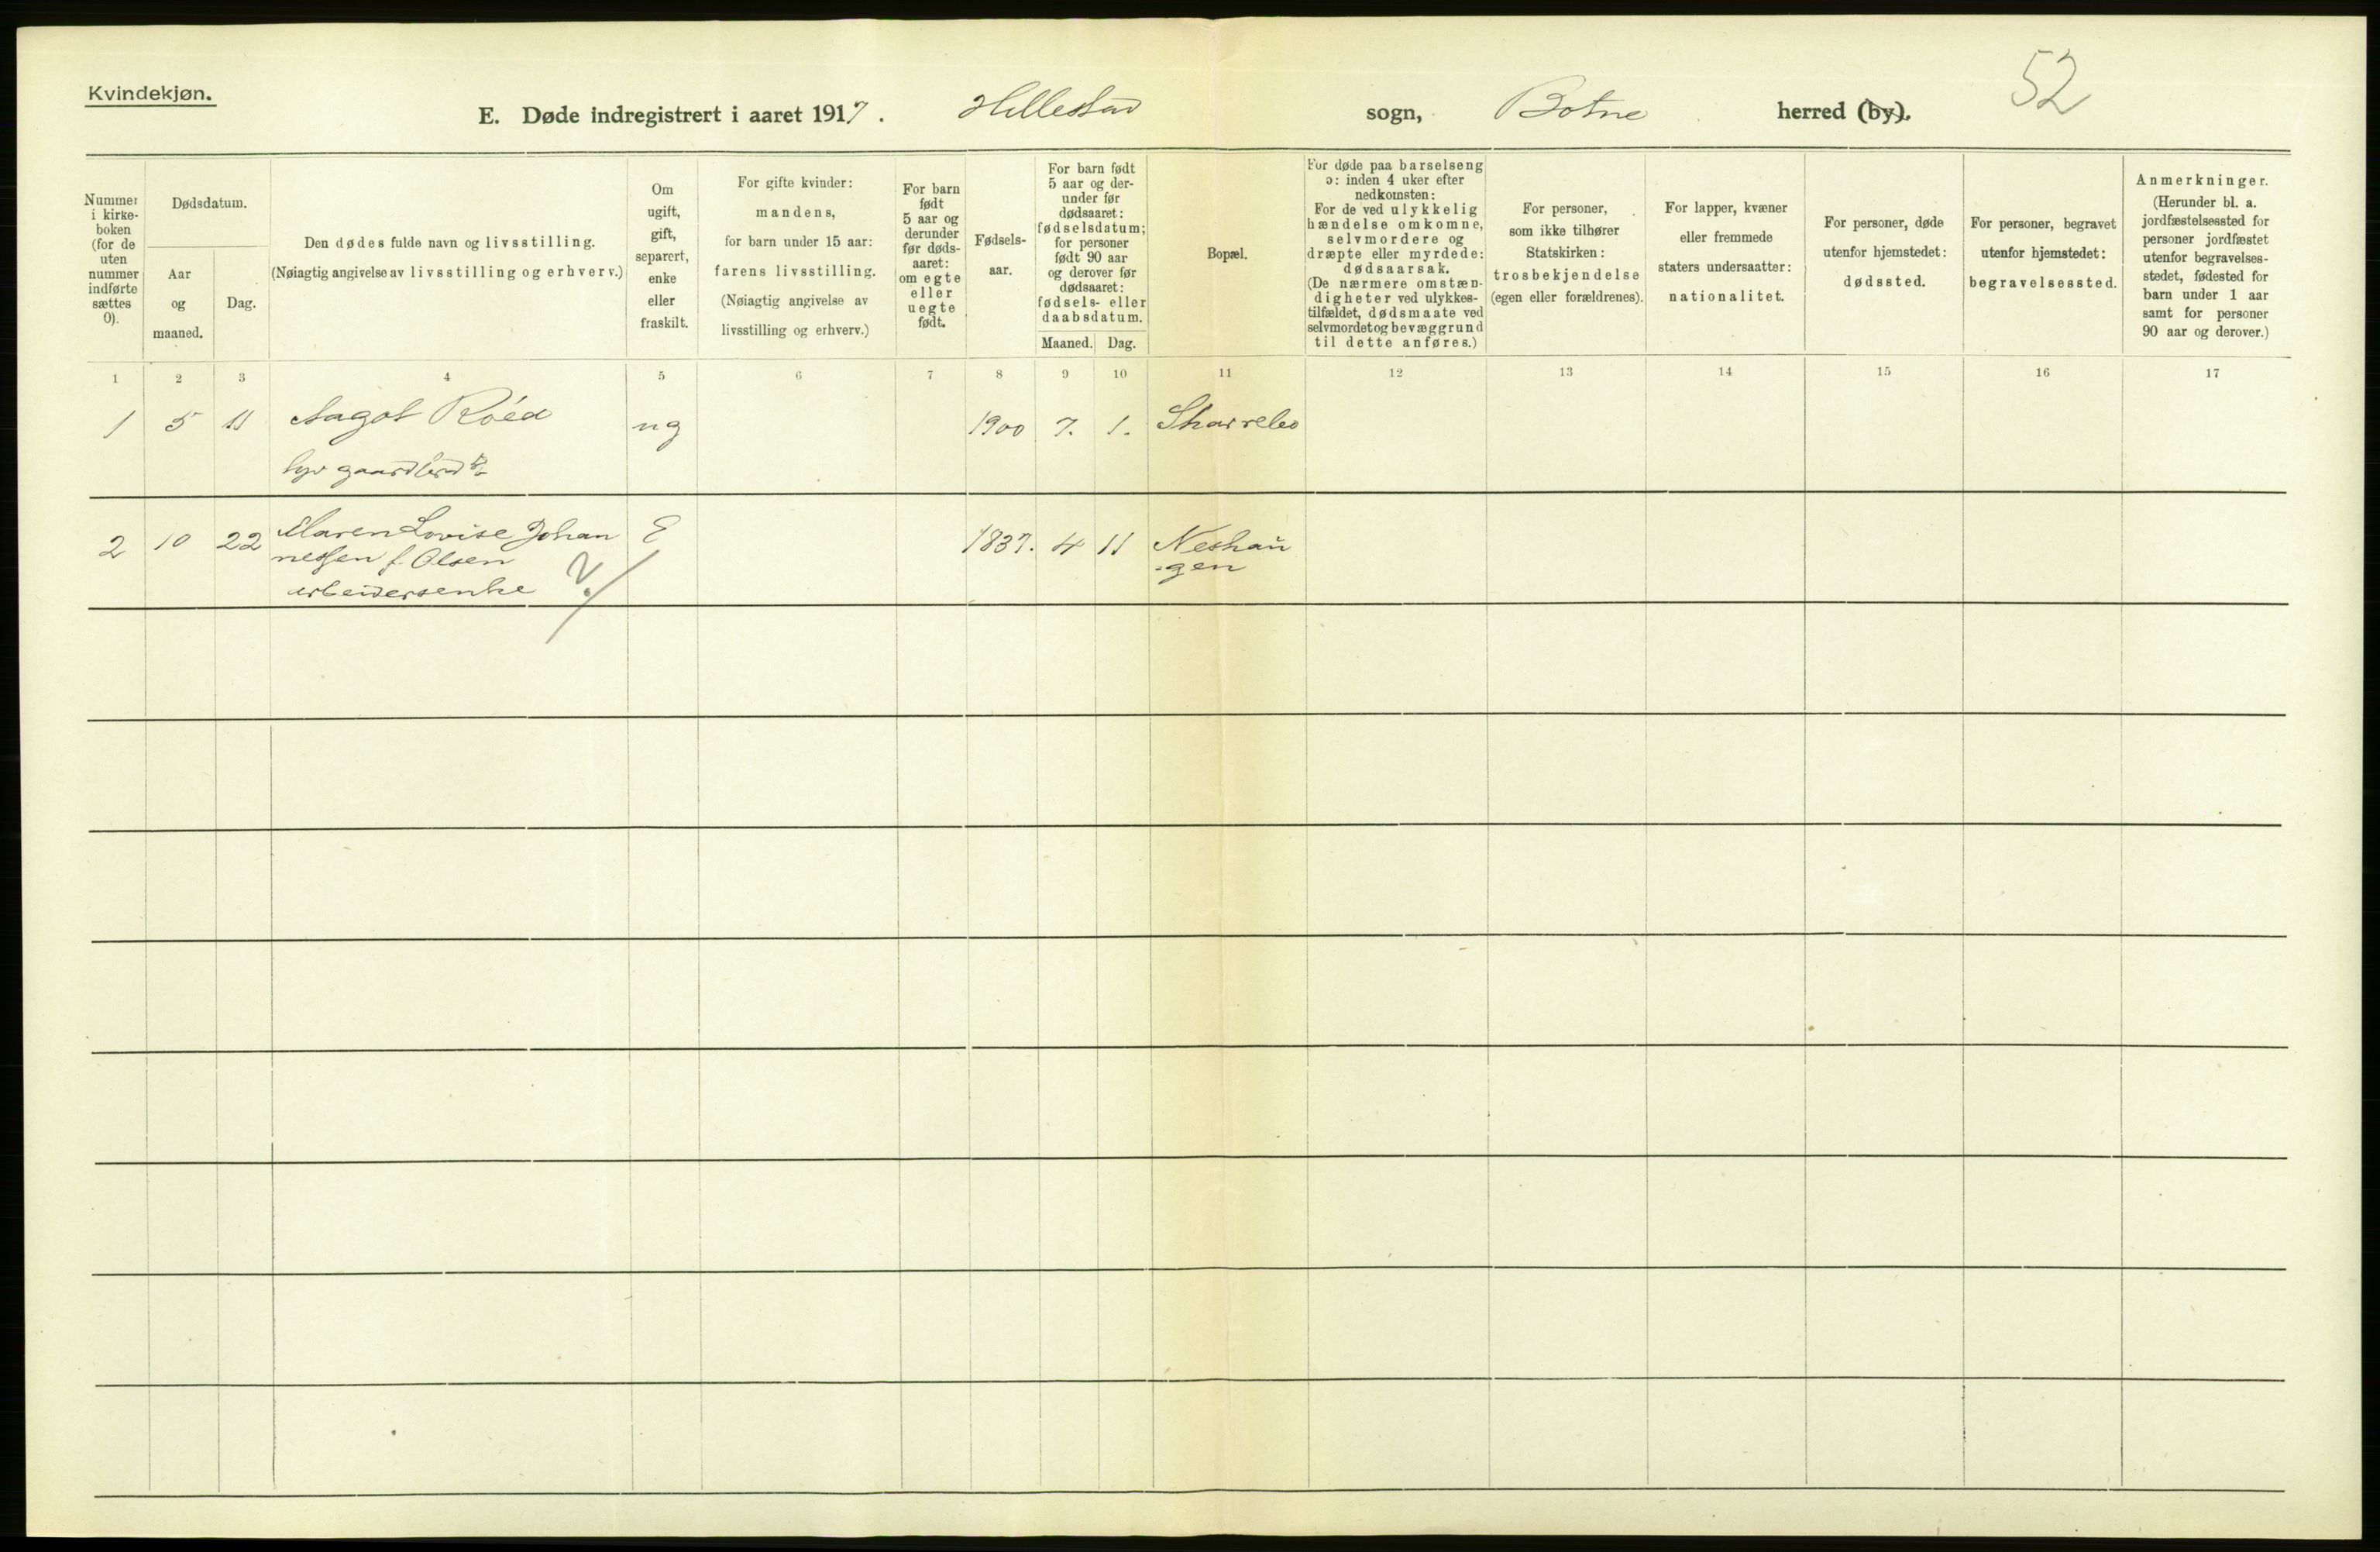 Kvindekjøn.
52
E. Døde indregistrert i aaret 1917. Hillestad sogn, Botne herred (by).
Nummer
i kirke-
boken
(for de
uten
nummer
indførte
sættes
0).
Dødsdatum.
Aar
og
maaned.
Dag.
Den dødes fulde navn og livsstilling.
(Nøiagtig angivelse av livsstilling og erhverv.)
Om
ugift,
gift,
separert,
enke
eller
fraskilt.
For gifte kvinder:
mandens,
for barn under 15 aar:
farens livsstilling.
(Nøiagtig angivelse av
livsstilling og erhverv.)
For barn
født
5 aar og
derunder
før døds-
aaret:
om egte
eller
uegte
født.
Fødsels-
aar.
For barn født
5 aar og der-
under før
dødsaaret:
fødselsdatum;
for personer
født 90 aar
og derover før
dødsaaret:
fødsels- eller
daabsdatum.
Maaned. Dag.
Bopæl.
For døde paa barselseng
ɔ: inden 4 uker efter
nedkomsten:
For de ved ulykkelig
hændelse omkomne,
selvmordere og
dræpte eller myrdede:
dødsaarsak.
(De nærmere omstæn-
digheter ved ulykkes-
tilfældet, dødsmaate ved
selvmordet og bevæggrund
til dette anføres.)
For personer,
som ikke tilhører
Statskirken:
trosbekjendelse
(egen eller forældrenes).
For lapper, kvæner
eller fremmede
staters undersaatter:
nationalitet.
For personer, døde
utenfor hjemstedet:
dødssted.
For personer, begravet
utenfor hjemstedet:
begravelsessted.
Anmerkninger.
(Herunder bl. a.
jordfæstelsessted for
personer jordfæstet
utenfor begravelses-
stedet, fødested for
barn under 1 aar
samt for personer
90 aar og derover.)
1 2 3 4 5 6 7 8 9 10 11 12 13 14 15 16 17
1 5 11 Aagot Röed ug 1900 7. 1. Skarrebo
2 10 22 Maren Lovise Johan E 1837. 4 11 Neshau
nessen f. Olsen -gen
arbeidersenke ?